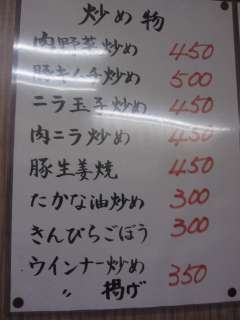 炒め物
肉野菜炒め 450
豚キムチ炒め 500
ニラ玉子炒め 450
肉ニラ炒め 450
豚生姜焼 450
たかな油炒め 300
きんぴらごぼう 300
ウインナー炒め 350
〃 揚げ